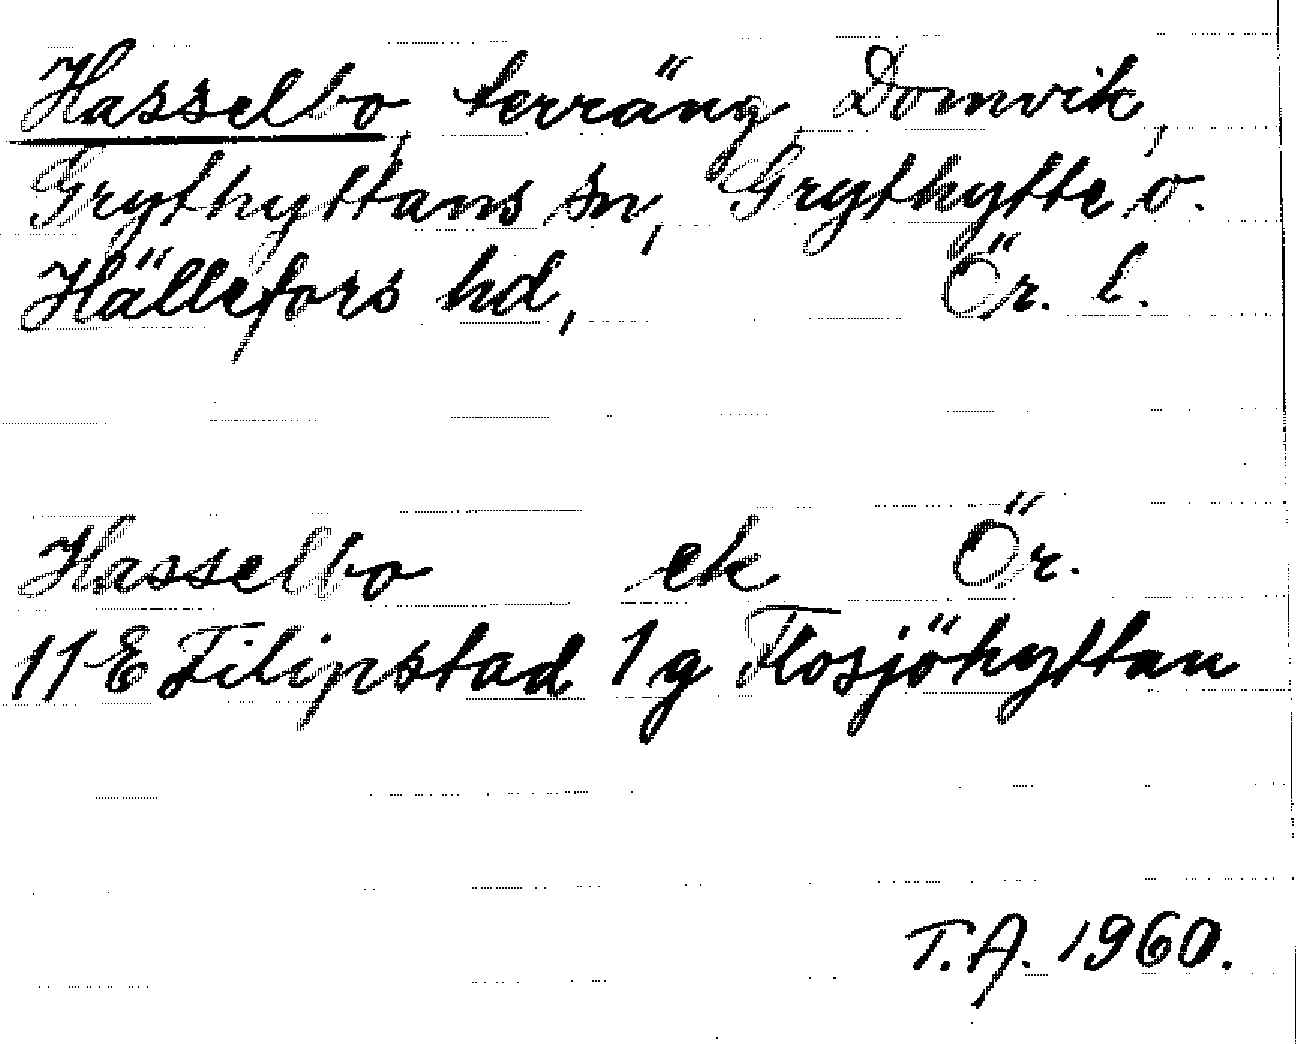 Hasselbo, terräng, Domvik,
Grythyttans sn, Grythytte o.
Hällefors hd, Ör. l.
Hasselbo ek Ör.
11 E Filipstad 1g Flosjöhyttan
T.A. 1960.